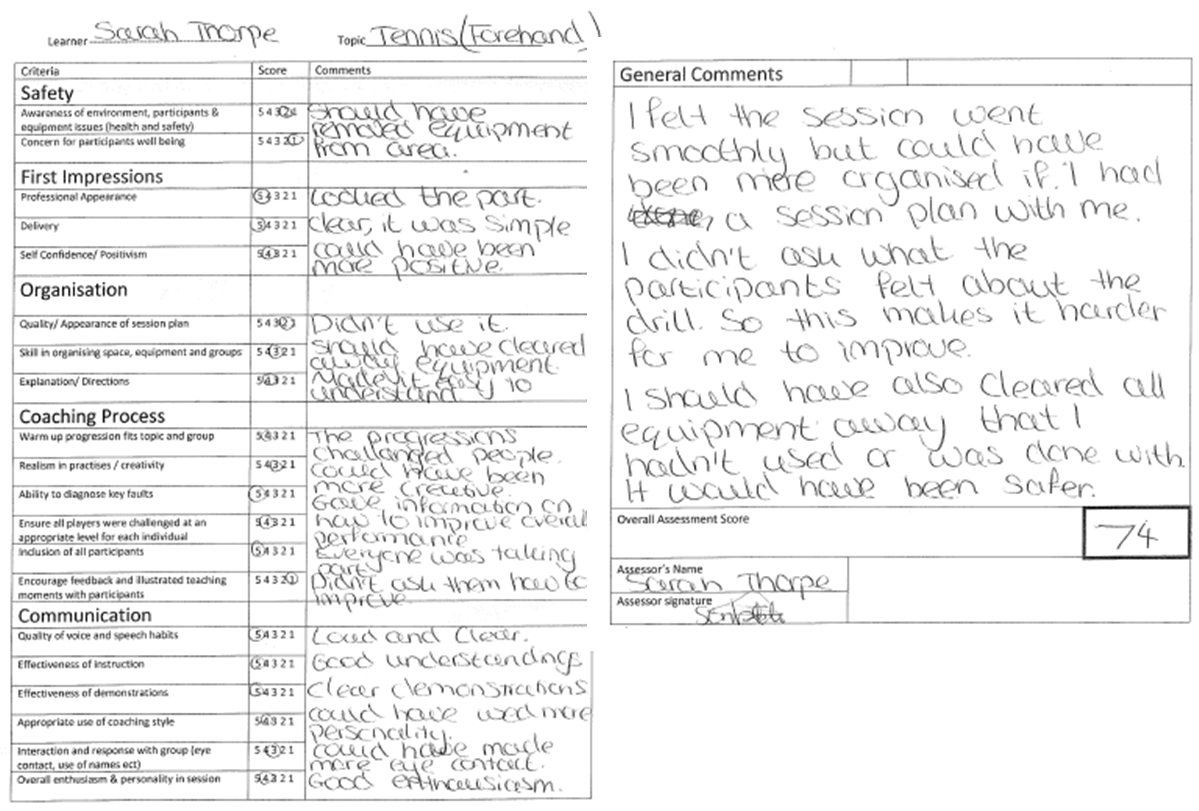 Learner Sarah Thorpe Topic Tennis (Forehand)
Criteria Score Comments
Safety
Awareness of environment, participants & equipment issues (health and safety) 5 4 3 2 1 Should have
removed equipment
Concern for participants well being 5 4 3 2 1 from area.
First Impressions
Professional Appearance 5 4 3 2 1 Looked the part.
Delivery 5 4 3 2 1 Clear, it was simple
Self Confidence/ Positivism 5 4 3 2 1 could have been
more positive.
Organisation
Quality/ Appearance of session plan 5 4 3 2 1 Didn't use it.
Skill in organising space, equipment and groups 5 4 3 2 1 should have cleared
away equipment.
Explanation/ Directions 5 4 3 2 1 Made it easy to
understand
Coaching Process
Warm up progression fits topic and group 5 4 3 2 1 The progressions
challanged people.
Realism in practises / creativity 5 4 3 2 1 could have been
more creative.
Ability to diagnose key faults 5 4 3 2 1 Gave information on
Ensure all players were challenged at an
appropriate level for each individual 5 4 3 2 1 how to improve overall
performance
Inclusion of all participants 5 4 3 2 1 Everyone was taking
part
Encourage feedback and illustrated teaching
moments with participants 5 4 3 2 1 Didn't ask them how to
improve.
Communication
Quality of voice and speech habits 5 4 3 2 1 Loud and Clear.
Effectiveness of instruction 5 4 3 2 1 Good understandings
Effectiveness of demonstrations 5 4 3 2 1 Clear demonstrations
Appropriate use of coaching style 5 4 3 2 1 could have used more
personality.
Interaction and response with group (eye
contact, use of names ect) 5 4 3 2 1 could have made
more eye contact.
Overall enthusiasm & personality in session 5 4 3 2 1 Good enthausicasm.
General Comments
I felt the session went
smoothly but could have
been more organised if I had
a session plan with me.
I didn't ask what the
participants felt about the
drill. So this makes it harder
for me to improve.
I should have also cleared all
equipment away that I
hadn't used or was done with.
It would have been safer.
Overall Assessment Score 74
Assessor's Name
Sarah Thorpe
Assessor signature